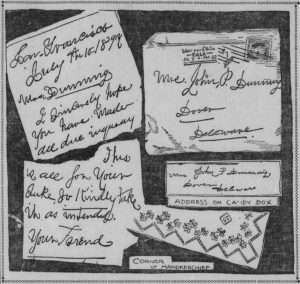 San Francisco
July 4th 15, 1899
Mrs Dunning
I Sincerely hope
You have made
all due inquiry
This
is all for Your
Sake, so Kindly take
it as intended.
Your Friend
Mrs. John, P Dunning
Dover
Delaware
Mrs John P Dunning
Dover
Delaware
ADDRESS ON CANDY BOX
CORNER
OF HANDKERCHIEF